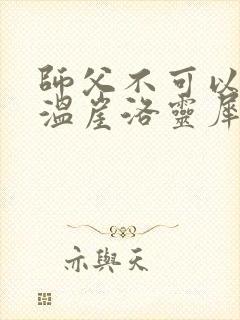 師父不可以
溫崖洛靈犀
亦與天